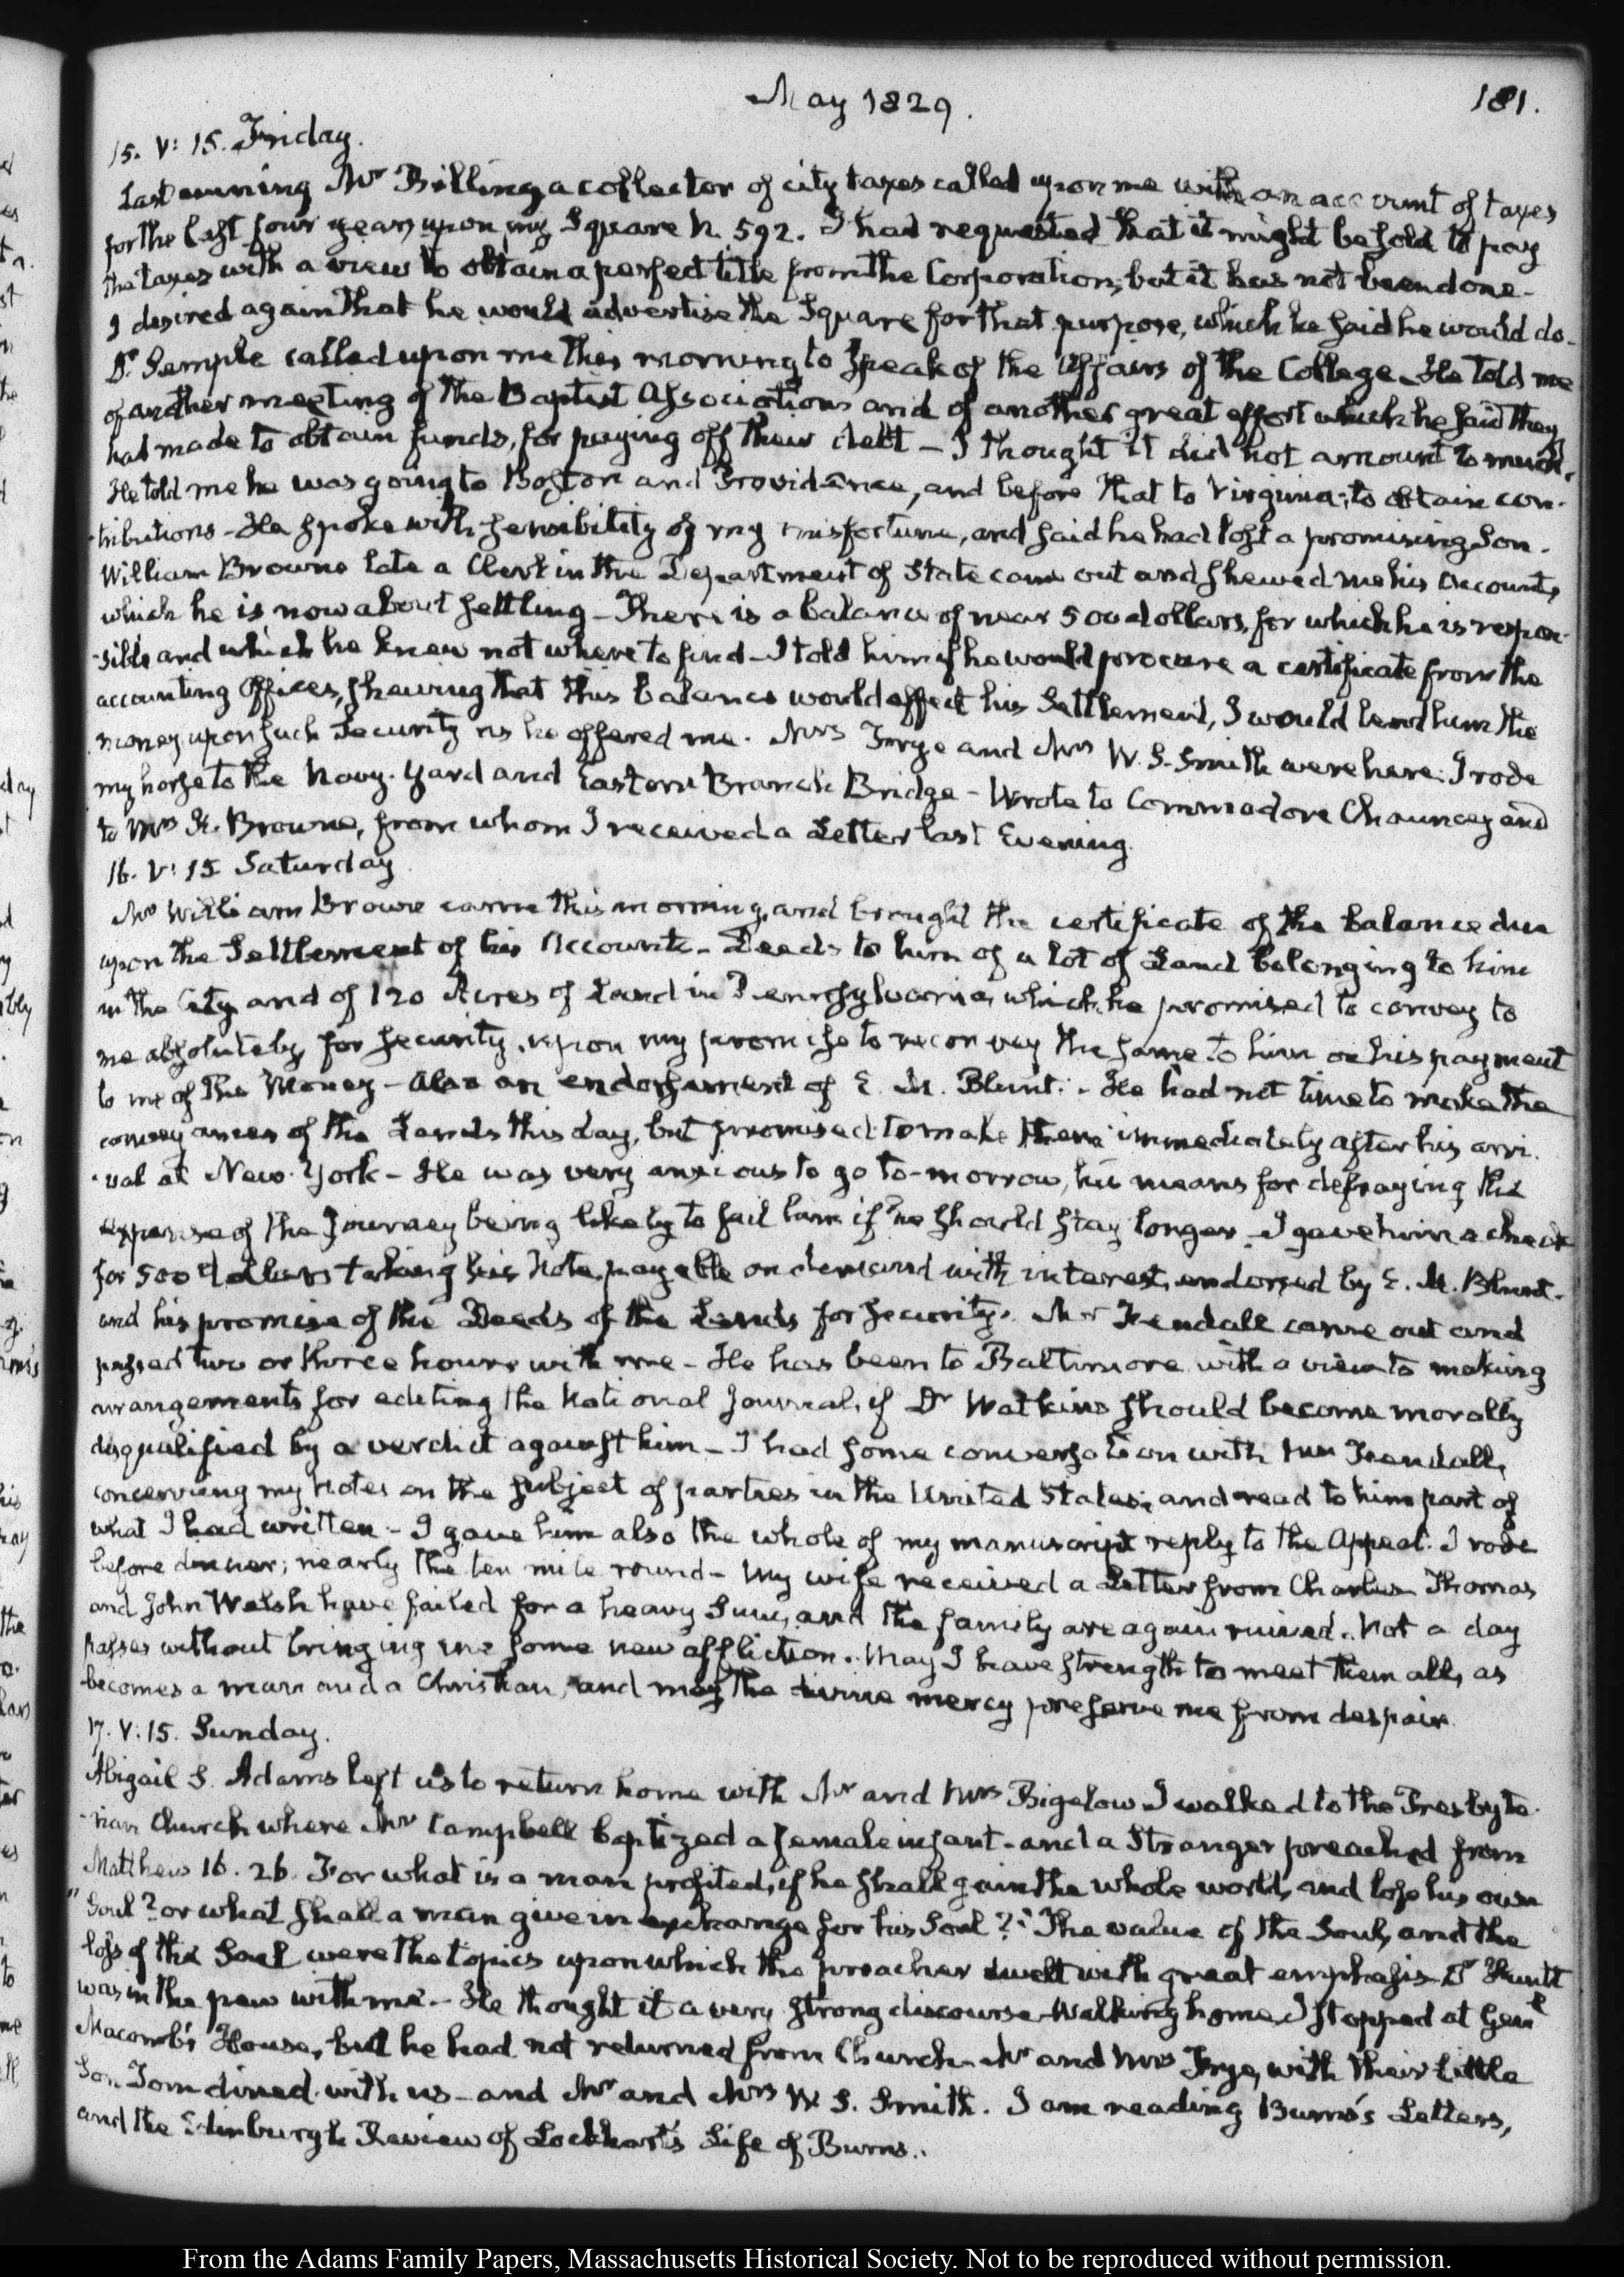 May 1829.
181.
15. V: 15. Friday.
Last evening Mr Billing a collector of city taxes called upon me with an account of taxes
for the last four years upon my Square N. 592. I had requested that it might be sold to pay
the taxes with a view to obtain a perfect title from the Corporation; but it has not been done-
I desired again that he would advertise the Square for that purpose, which he said he would do-
Dr Semple called upon me this morning to speak of the Affairs of the College. He told me
of another meeting of the Baptist Associations and of another great effort which he said they
had made to obtain funds, for paying off their debt - I thought it did not amount to much.
He told me he was going to Boston and Providence, and before that to Virginia; to obtain con-
-tributions - He spoke with sensibility of my misfortune, and said he had lost a promising Son.
William Browne late a Clerk in the Department of State came out and shewed me his accounts
which he is now about settling - There is a balance of near 500 dollars, for which he is respon-
-sible and which he knew not where to find - I told him if he would procure a certificate from the
accounting Offices, shewing that this balance would effect his Settlement, I would lend him the
money upon such Security as he offered me. Mrs Frye and Mrs W. S. Smith were here. I rode
my horse to the Navy-Yard and Eastern Branch Bridge - Wrote to Commodore Chauncey and
to Mrs H. Browne, from whom I received a Letter last Evening.
16. V: 15 Saturday
Mr William Browne came this morning, and brought the certificate of the balance due
upon the Settlement of his Accounts - Deeds to him of a lot of Land belonging to him
in the City and of 120 Acres of Land in Pennsylvania, which he promised to convey to
me absolutely, for security, upon my promise to reconvey the same to him on his payment
to me of the Money - also an endorsement of E. M. Blunt. - He had not time to make the
conveyances of the Lands this day, but promised to make them immediately after his arri-
-val at New-York - He was very anxious to go to-morrow, his means for defraying the
expense of the Journey being likely to fail him if he should stay longer - I gave him a check
for 500 dollars taking his Note payable on demand with interest, endorsed by E. M. Blunt-
and his promise of the Deeds of the Lands for security. Mr Kendall came out and
passed two or three hours with me - He has been to Baltimore with a view to making
arrangements for editing the National Journal, if Dr Watkins should become morally
disqualified by a verdict against him - I had some conversation with Mr Kendall,
concerning my Notes on the subject of parties in the United States; and read to him part of
what I had written - I gave him also the whole of my manuscript reply to the Appeal. I rode
before dinner; nearly the ten mile round - My wife received a Letter from Charles Thomas
and John Welsh have failed for a heavy Sum, and the family are again ruined. Not a day
passes without bringing me some new affliction. May I have strength to meet them all, as
becomes a man and a Christian, and may the divine mercy preserve me from despair.
17. V: 15. Sunday.
Abigail S. Adams left us to return home with Mr and Mrs Bigelow I walked to the Presbyte-
-rian Church where Mr Campbell baptized a female infant - and a Stranger preached from
Matthew 16. 26. For what is a man profited, if he shall gain the whole world, and lose his own
"Soul? or what shall a man give in exchange for his Soul?" The value of the Soul, and the
loss of the Soul were the topics upon which the preacher dwelt with great emphasis. Dr Huntt
was in the pew with me. - He thought it a very strong discourse - Walking home, I stopped at Genl
Macomb's House, but he had not returned from Church. Mr and Mrs Frye, with their little
Son Tom dined with us - and Mr and Mrs W. S. Smith. I am reading Burns's Letters,
and the Edinburgh Review of Lockhart's Life of Burns.
From the Adams Family Papers, Massachusetts Historical Society. Not to be reproduced without permission.